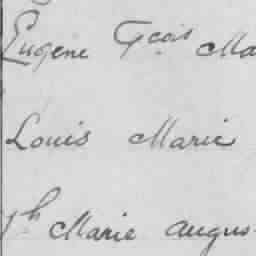 Eugène Fçois Ma
Louis Marie
Jh Marie Augus